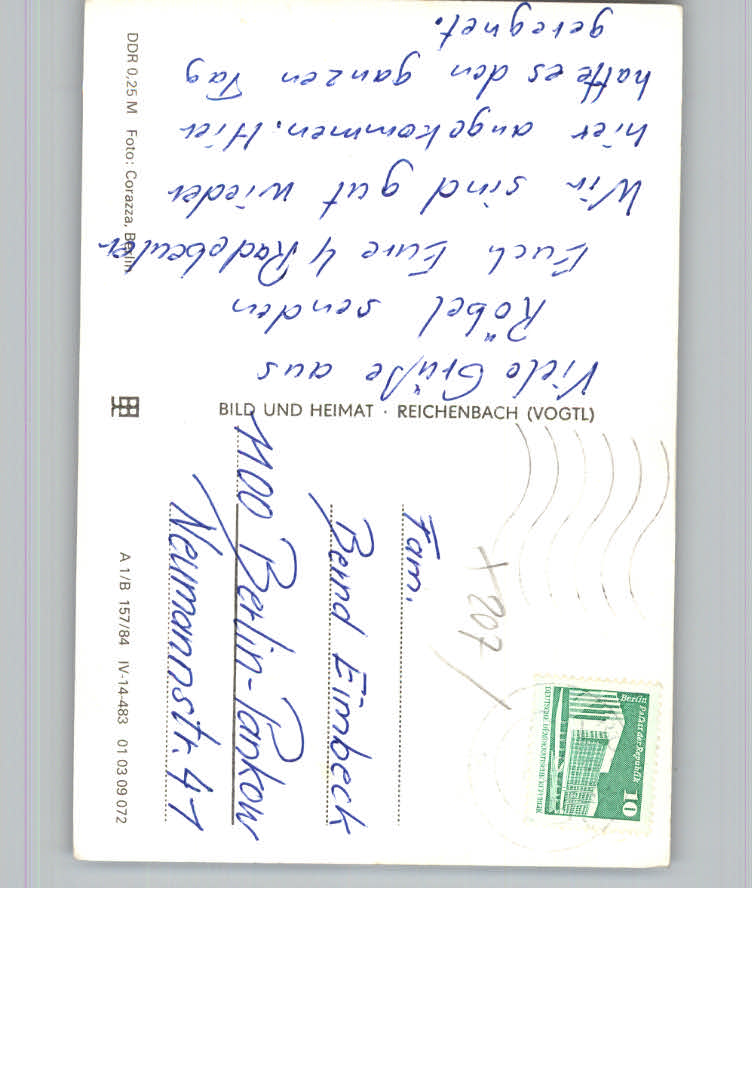 Viele Grüße aus
Röbel senden
Euch Eure 4 Radebeuler
Wir sind gut wieder
hier angekommen. Hier
hatte es den ganzen Tag
geregnet.
DDR 0,25 M Foto: Corazza, Berlin
BILD UND HEIMAT · REICHENBACH (VOGTL)
A 1/B 157/84 IV-14-483 01 03 09 072
Fam.
Bernd Eimbeck
1100 Berlin-Pankow
Neumannstr. 41
X 207 /
Berlin Palast der Republik
10
DEUTSCHE DEMOKRATISCHE REPUBLIK